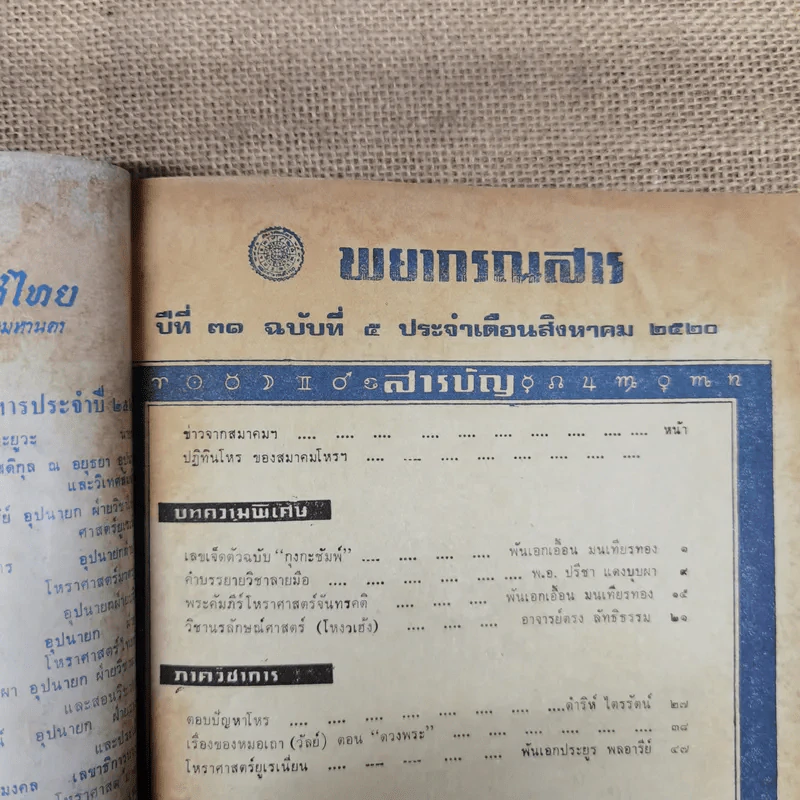 ร์ไทย
มหานคร
ประจำปี
ณ อยุธยา
อุปนายก ฝ่ายวิชา
อุปนายก
อุปนายก
อุปนายก
อุปนายก ฝ่าย
พยากรณสาร
ปีที่ ๓๑ ฉบับที่ ๕ ประจำเดือนสิงหาคม ๒๕๒๐
♈ ☉ ♉ ☽ ♊ ♂ ♋ สารบัญ ☿ ♌ ♃ ♍ ♀ ♏ ♄
ข่าวจากสมาคมฯ .... .... .... .... .... .... .... .... .... หน้า
ปฏิทินโหร ของสมาคมโหรฯ .... .... .... .... .... .... ....
บทความพิเศษ
เลขเจ็ดตัวฉบับ "กุงกะชัมพ์" .... .... .... .... พันเอกเอื้อน มนเทียรทอง ๑
คำบรรยายวิชาลายมือ .... .... .... .... .... .... พ.อ. ปรีชา แดงบุบผา ๙
พระคัมภีร์โหราศาสตร์จันทรคติ .... .... .... พันเอกเอื้อน มนเทียรทอง ๑๕
วิชานรลักษณ์ศาสตร์ (โหงวเฮ้ง) .... .... .... อาจารย์ตรง ลัทธิธรรม ๒๑
ภาควิชาการ
ตอบปัญหาโหร .... .... .... .... .... .... ....ดำริห์ ไตรรัตน์ ๒๗
เรื่องของหมอเถา (วัลย์) ตอน "ดวงพระ" .... .... .... .... .... ๓๘
โหราศาสตร์ยูเรเนียน .... .... .... .... .... พันเอกประยูร พลอารีย์ ๔๗